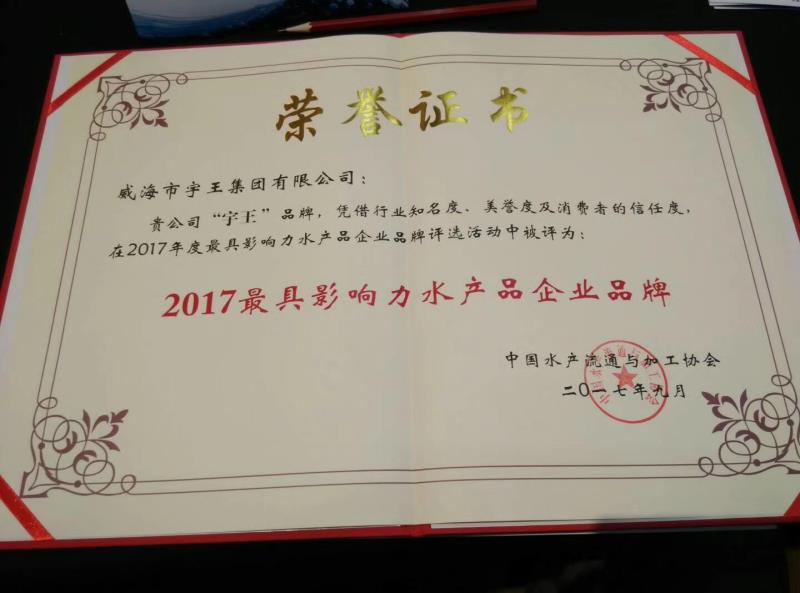 荣誉证书
威海市宇王集团有限公司：
贵公司“宇王”品牌，凭借行业知名度、美誉度及消费者的信任度，
在2017年度最具影响力水产品企业品牌评选活动中被评为：
2017最具影响力水产品企业品牌
中国水产流通与加工协会
二〇一七年九月
中国水产流通与加工协会